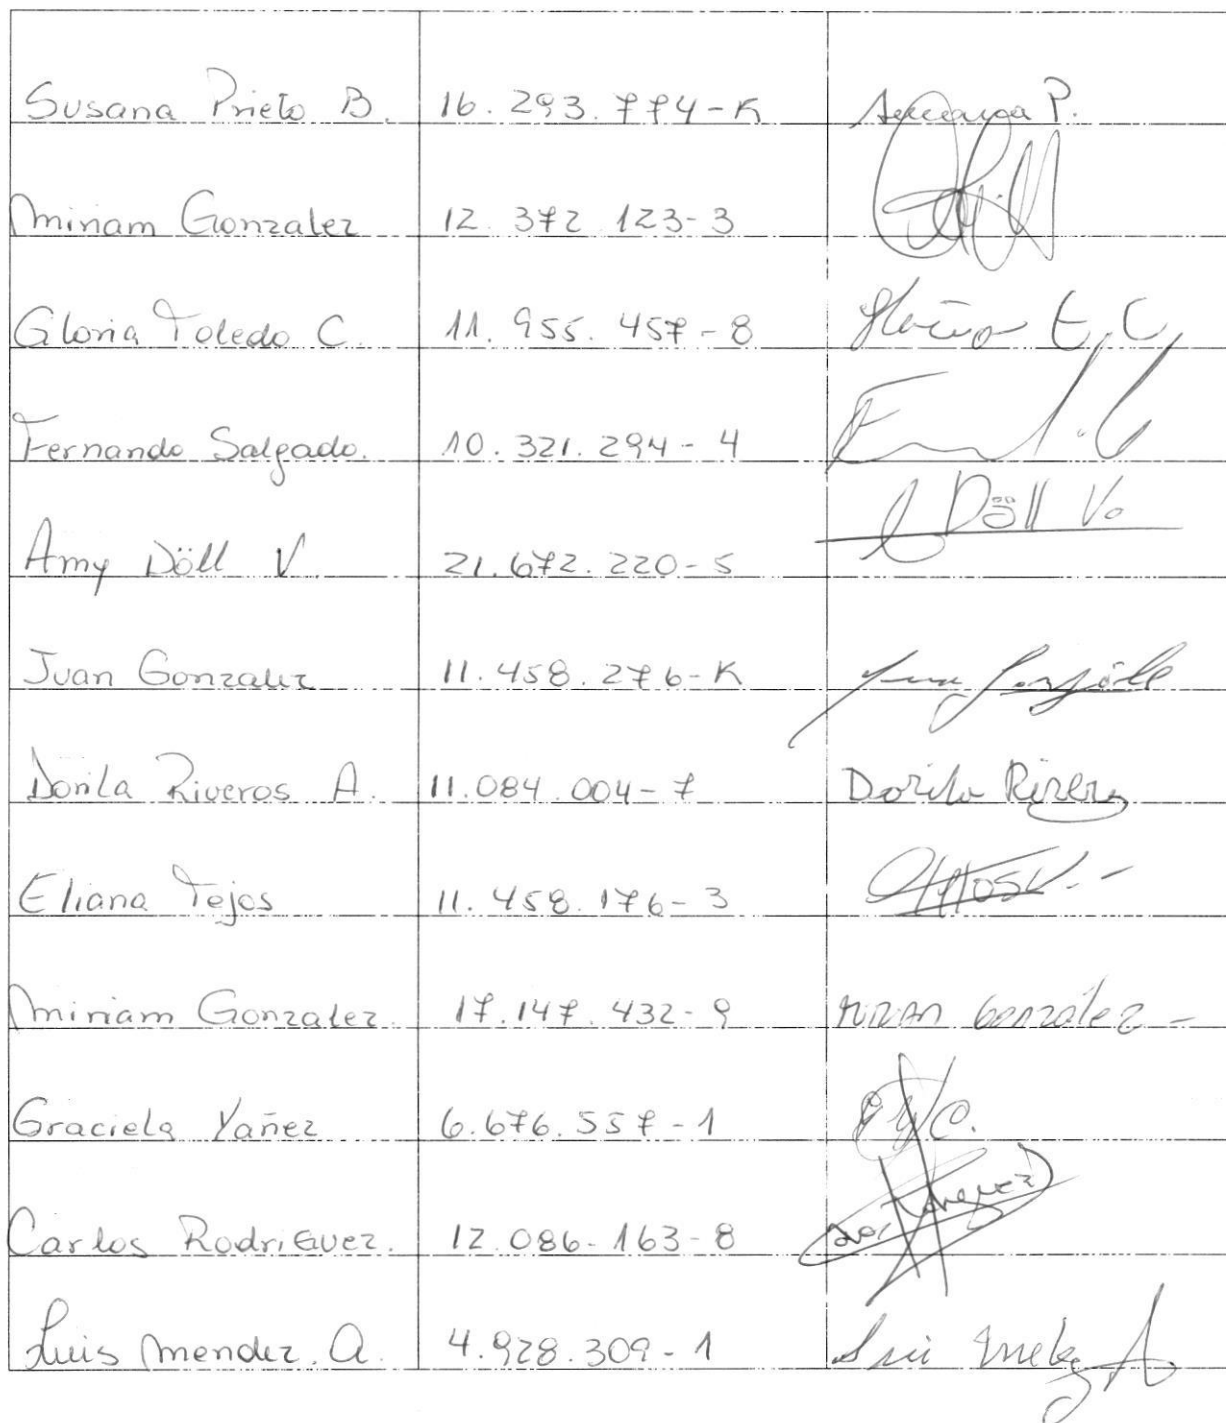 Susana Prieto B. 16.293.774-K Susana P.
Miriam Gonzalez 12.372.123-3
Gloria Toledo C. 11.955.457-8 Gloria t. C.
Fernando Salgado. 10.321.294-4
Amy Döll V. 21.672.220-5 A Döll V.
Juan Gonzalez 11.458.276-K Juan Gonzalez
Dorila Riveros A. 11.084.004-7 Dorila Riveros
Eliana Tejos 11.458.176-3
Miriam Gonzalez. 17.147.432-9 González -
Graciela Yañez 6.676.557-1
Carlos RodriGuez. 12.086-163-8
Luis Mendez. A. 4.928.309-1